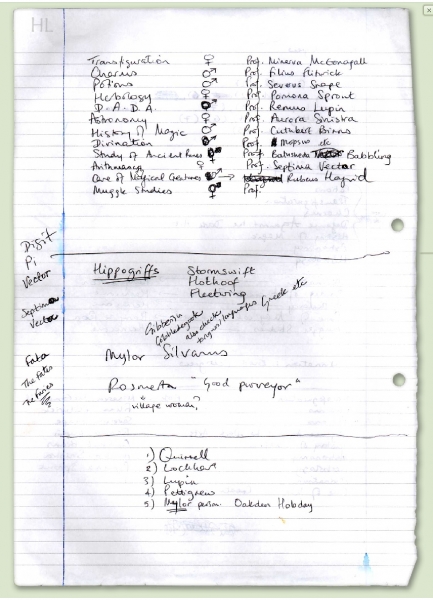 HL
Transfiguration ♀ Prof. Minerva McGonagall
Charms ♂ Prof. Filius Flitwick
Potions ♂ Prof. Severus Snape
Herbology ♀ Prof. Pomona Sprout
D.A.D.A. ♂ Prof. Remus Lupin
Astronomy ♀ Prof. Aurora Sinistra
History of Magic ♂ Prof. Cuthbert Binns
Divination Prof. Mopsus etc
Study of Ancient Runes Prof. Bathsheda Babbling
Arithmancy ♀ Prof. Septima Vector
Care of Magical Creatures ♂ → Rubeus Hagrid
Muggle Studies Prof.
Digit
Pi
Vector
Septima
Vector
Fata
The Fates
The Furies
Hippogriffs Stormswift
Hothoof
Fleetwing
Gibberish
Gobbledegook
also check
languages Greek etc
Mylor Silvanus
Rosmerta "Good purveyor"
"village woman?
1) Quirrell
2) Lockhart
3) Lupin
4) Pettigrew
5) Mylor person. Oakden Hobday